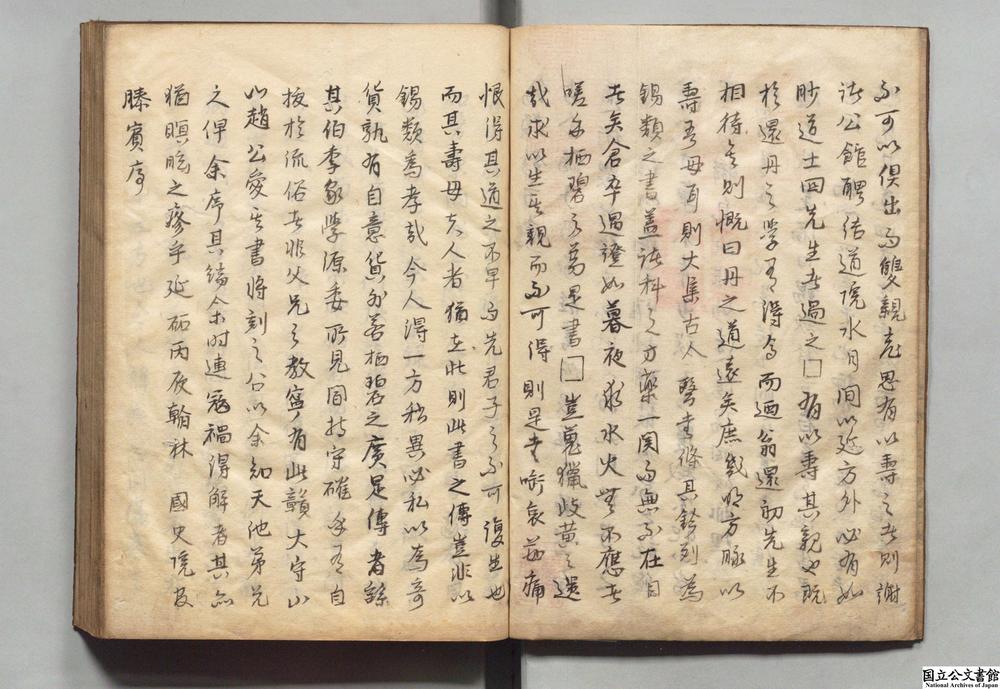 不可以俱出而雙親老思有以壽之者則謝
諸公館醪結道院水月間以延方外必有如
眇道士四先生者過之□有以壽其親也既
於還丹之學有得焉而廼翁還初先生不
相待矣則慨曰丹之道遠矣庶或明方脉以
壽吾母耳則大集古人醫書條其鋟刻為
錫類之書蓋諸科之方藥一閱而無不在目
者矣倉卒過證如暮夜求水火無不應者
嗟乎栖碧之為是書□豈蒐獵岐黃之遺
哉求以生其親而不可得則是書啣哀茹痛
恨得其道之不早而先君子之不可復生也
而其壽母夫人者猶在此則此書之傳豈非以
錫類為孝哉今人得一方稍異必私以為奇
貨孰有自意貨外若栖碧之廣是傳者繇
其伯季家學源委所見固持守確每有自
拔於流俗者非父兄之教寧有此贛大守山
心趙公愛其書將刻之公以余知天池弟兄
之俾余序其鋟余时連寇禍得解者其亦
猶瞑眩之瘳乎延祐丙辰翰林 國史院
滕賓序
国立公文書館
National Archives of Japan